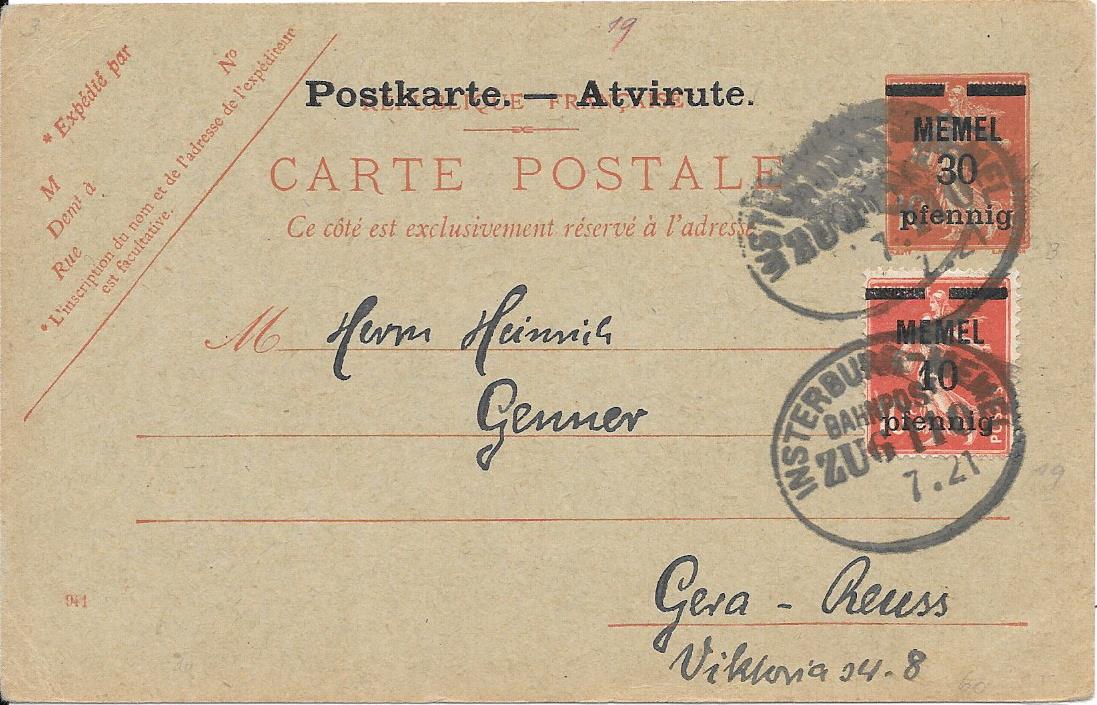 19
* Expédié par
M
Demt à
Rue
No
* L'inscription du nom et de l'adresse de l'expéditeur
est facultative.
Postkarte. — Atvirute.
RÉPUBLIQUE FRANÇAISE
CARTE POSTALE
Ce côté est exclusivement réservé à l'adresse
MEMEL
30
pfennig
MEMEL
10
pfennig
POSTES
INSTERBURG-MEMEL
BAHNPOST
ZUG 110
7.21
M Herrn Heinrich
Genner
Gera - Reuss
Viktoria str. 8
941
19